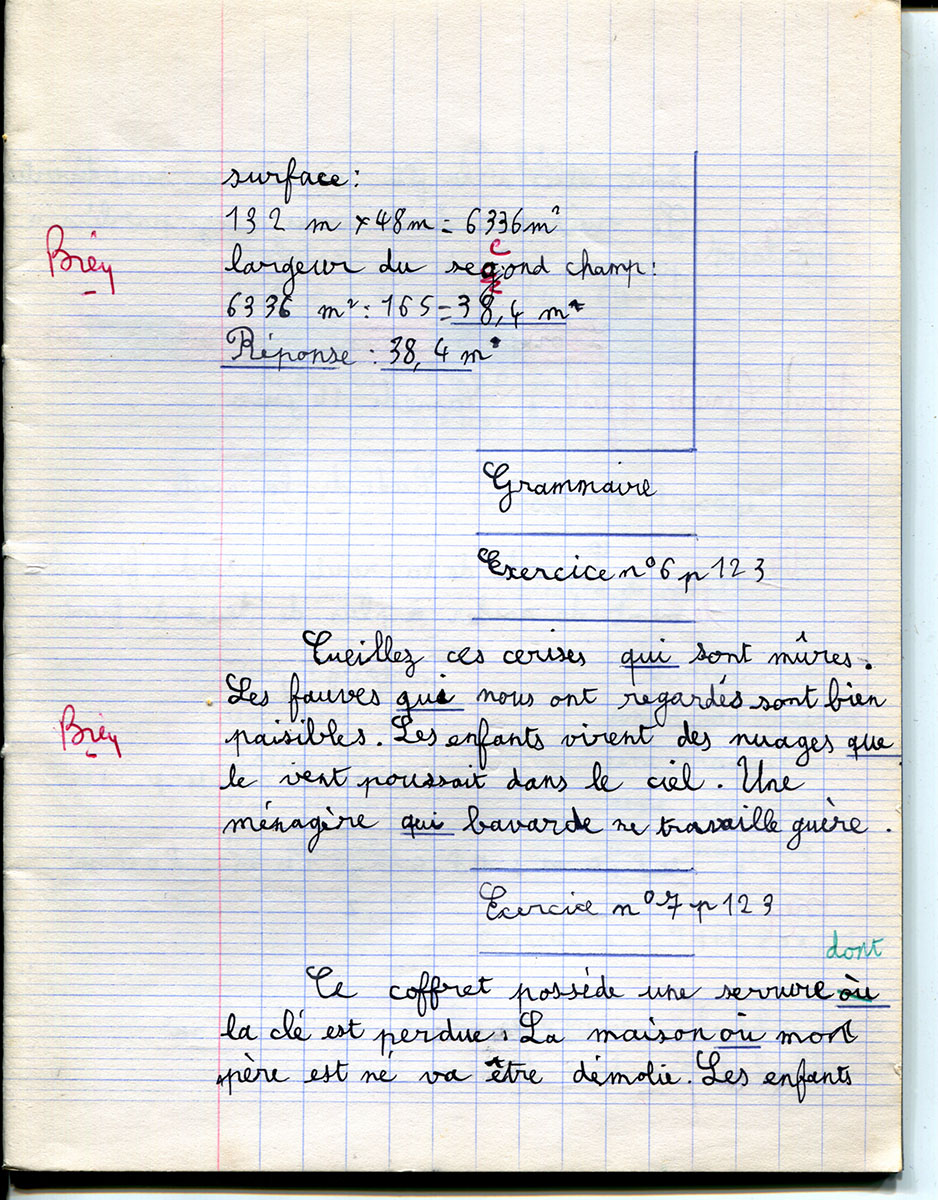 surface :
132 m × 48 m = 6336 m²
Bien
c
largeur du segond champ :
6336 m² : 165 = 38,4 m
Réponse : 38,4 m
Grammaire
Exercice n°6 p 123
Cueillez ces cerises qui sont mûres.
Les fauves qui nous ont regardés sont bien
Bien
paisibles. Les enfants virent des nuages que
le vent poussait dans le ciel. Une
ménagère qui bavarde ne travaille guère.
Exercice n°7 p 123
dont
Ce coffret possède une serrure où
la clé est perdue. La maison où mon
père est né va être démolie. Les enfants